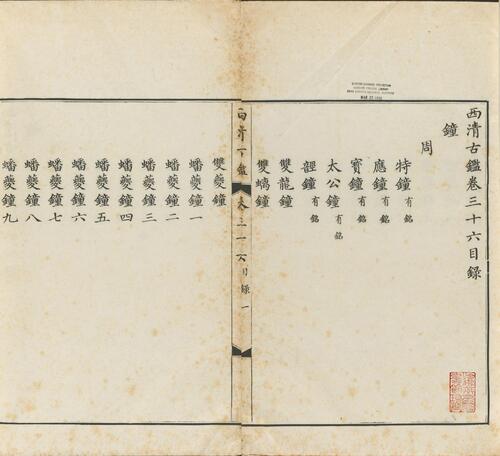 西清古鑑卷三十六目録
鐘
周
特鐘 有銘
應鐘 有銘
寳鐘 有銘
太公鐘 有銘
鐘 有銘
雙龍鐘
雙螭鐘
西清古鑑 卷三十六 目録 一
雙夔鐘
蟠夔鐘一
蟠夔鐘二
蟠夔鐘三
蟠夔鐘四
蟠夔鐘五
蟠夔鐘六
蟠夔鐘七
蟠夔鐘八
蟠夔鐘九